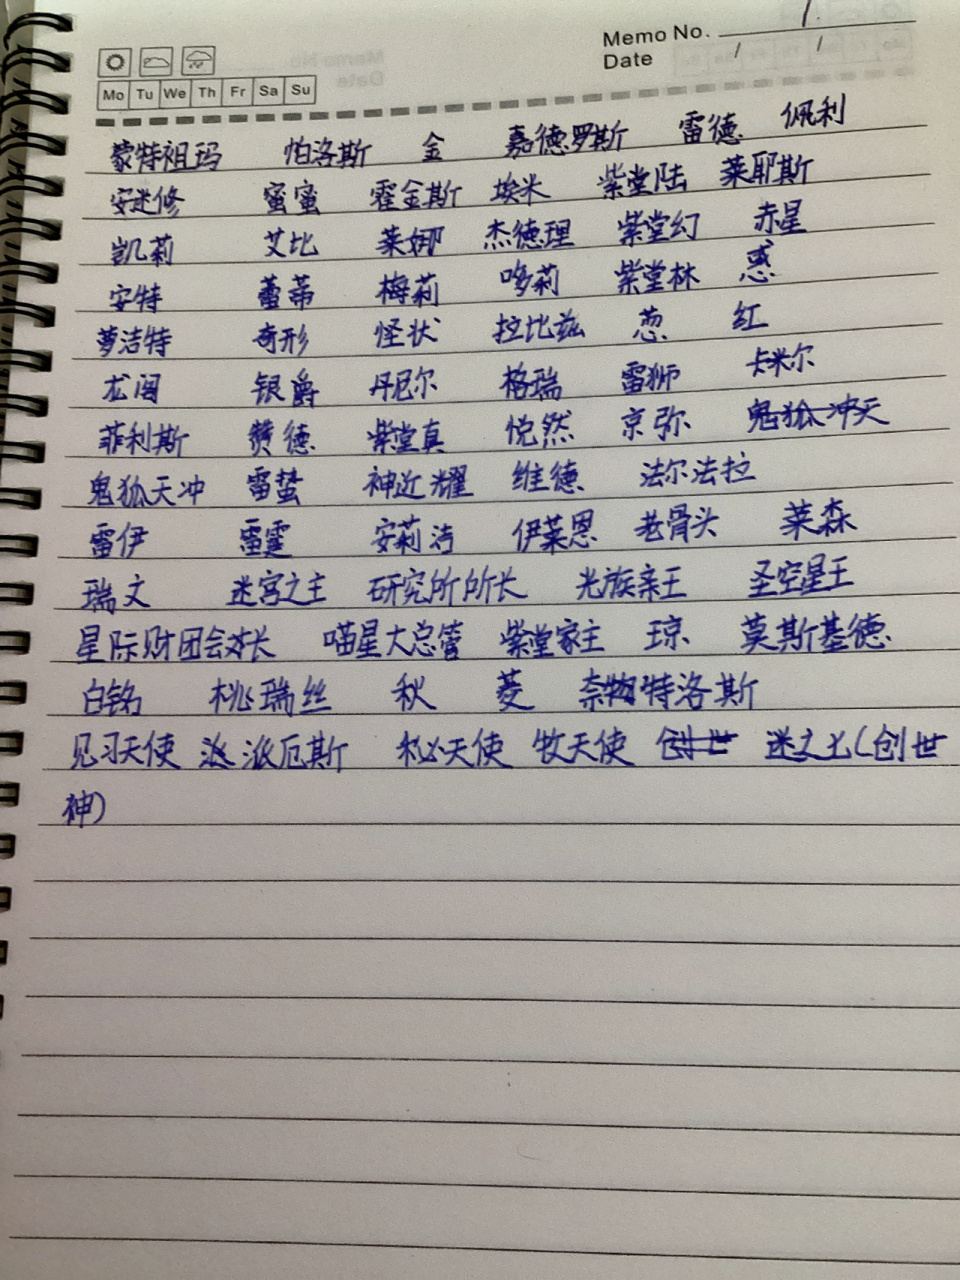 Memo No. 1.
Date / /
Mo Tu We Th Fr Sa Su
蒙特祖玛 帕洛斯 金 嘉德罗斯 雷德 佩利
安迷修 蜜蜜 霍金斯 埃米 紫堂陆 莱耶斯
凯莉 艾比 莱娜 杰德理 紫堂幻 赤星
安特 蕾蒂 梅莉 哆莉 紫堂林 惑
萝洁特 奇形 怪状 拉比兹 葱 红
银爵 丹尼尔 格瑞 雷狮 卡米尔
菲利斯 赞德 紫堂真 悦然 京弥 鬼狐冲天
鬼狐天冲 雷蛰 神近耀 维德 法尔法拉
雷伊 雷霆 安莉洁 伊莱恩 老骨头 莱森
瑞文 迷宫之主 研究所所长 光族亲王 圣空星王
星际财团会长 喵星大总管 紫堂家主 琼 莫斯基德
白铭 桃瑞丝 秋 菱 奈特洛斯
见习天使 派 派厄斯 秘天使 牧天使 创世 迷之七(创世
神)